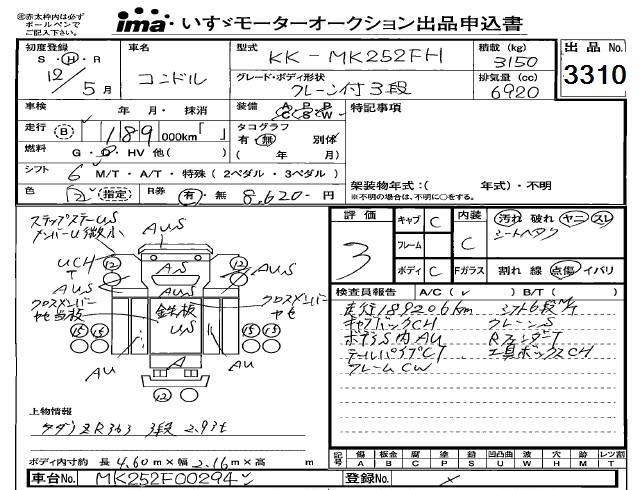 ㊟赤太枠内は必ず
ボールペンで
ご記入下さい。
ima いすゞモーターオークション出品申込書
初度登録 S・H・R 12/5月
車名 コンドル
型式 KK-MK252FH
積載 (kg) 3150
出品 No. 3310
グレード・ボディ形状 クレーン付3段
排気量 (cc) 6920
車検 年 月・抹消
装備 A/C P/S P/W
特記事項
走行 B 189 000km「 」
タコグラフ
有・無 別体
( 年 月)
燃料 G・D・HV 他( )
シフト 6 M/T・A/T・特殊(2ペダル・3ペダル)
架装物年式:( 年式)・不明
※不明の場合は、不明に○をする。
色 指定 R券 有・無 8,620-円
評価 3
キャブ C
フレーム
ボディ C
内装 C
汚れ 破れ ヤニ スレ
シートヘタリ
Fガラス 割れ 線 点傷 イバリ
検査員報告 A/C( ✓ ) B/T( )
走行189206km シフト6段M/T
キャブバックCH クレーンS
ボデーS内AU RフェンダーT
テールパイプCT 工具ボックスCH
フレームCW
ステップステーUS
メンバーU微小
AUS
UCH
T
12
12
AS
AUS
AUS
AUS
クロスメンバー
鉄板
US
クロスメンバー
15 15
15 15
AU
AU
A
12
上物情報
タダノZR363 3段 2.93t
ボディ内寸約 長 4.60m×幅 2.16m×高 m
記号 傷A 板金B 腐C 塗P 錆S 凹凸曲U 波W 穴H 歪M レンズ割T
車台No. MK252F00294
登録No. ×